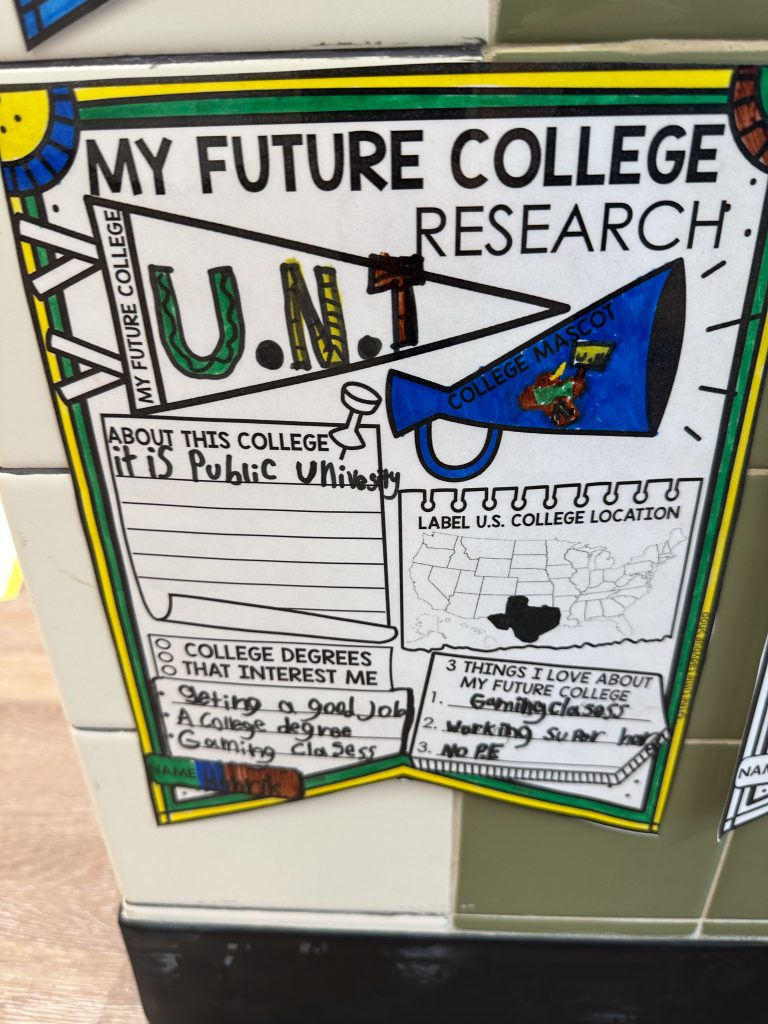 MY FUTURE COLLEGE
RESEARCH
MY FUTURE COLLEGE
U.N.T
COLLEGE MASCOT
ABOUT THIS COLLEGE
it is Public Univesity
LABEL U.S. COLLEGE LOCATION
COLLEGE DEGREES
THAT INTEREST ME
• geting a good Job
• A College degree
• Gaming Clasess
3 THINGS I LOVE ABOUT
MY FUTURE COLLEGE
1. Gaming clasess
2. Working super hard
3. No PE
NAME
©The Little Ladybug Shop
NAM